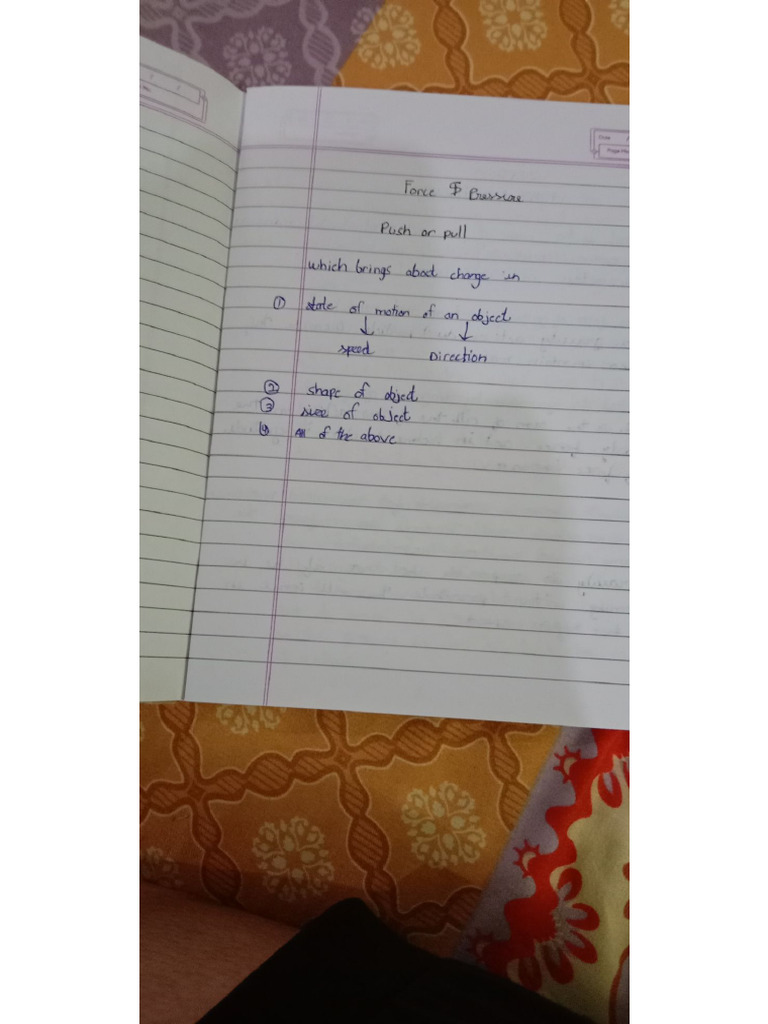 Date
Page No
Force & Pressure
Push or pull
which brings about change in
① state of motion of an object
↓ ↓
speed Direction
② shape of object
③ size of object
④ All of the above